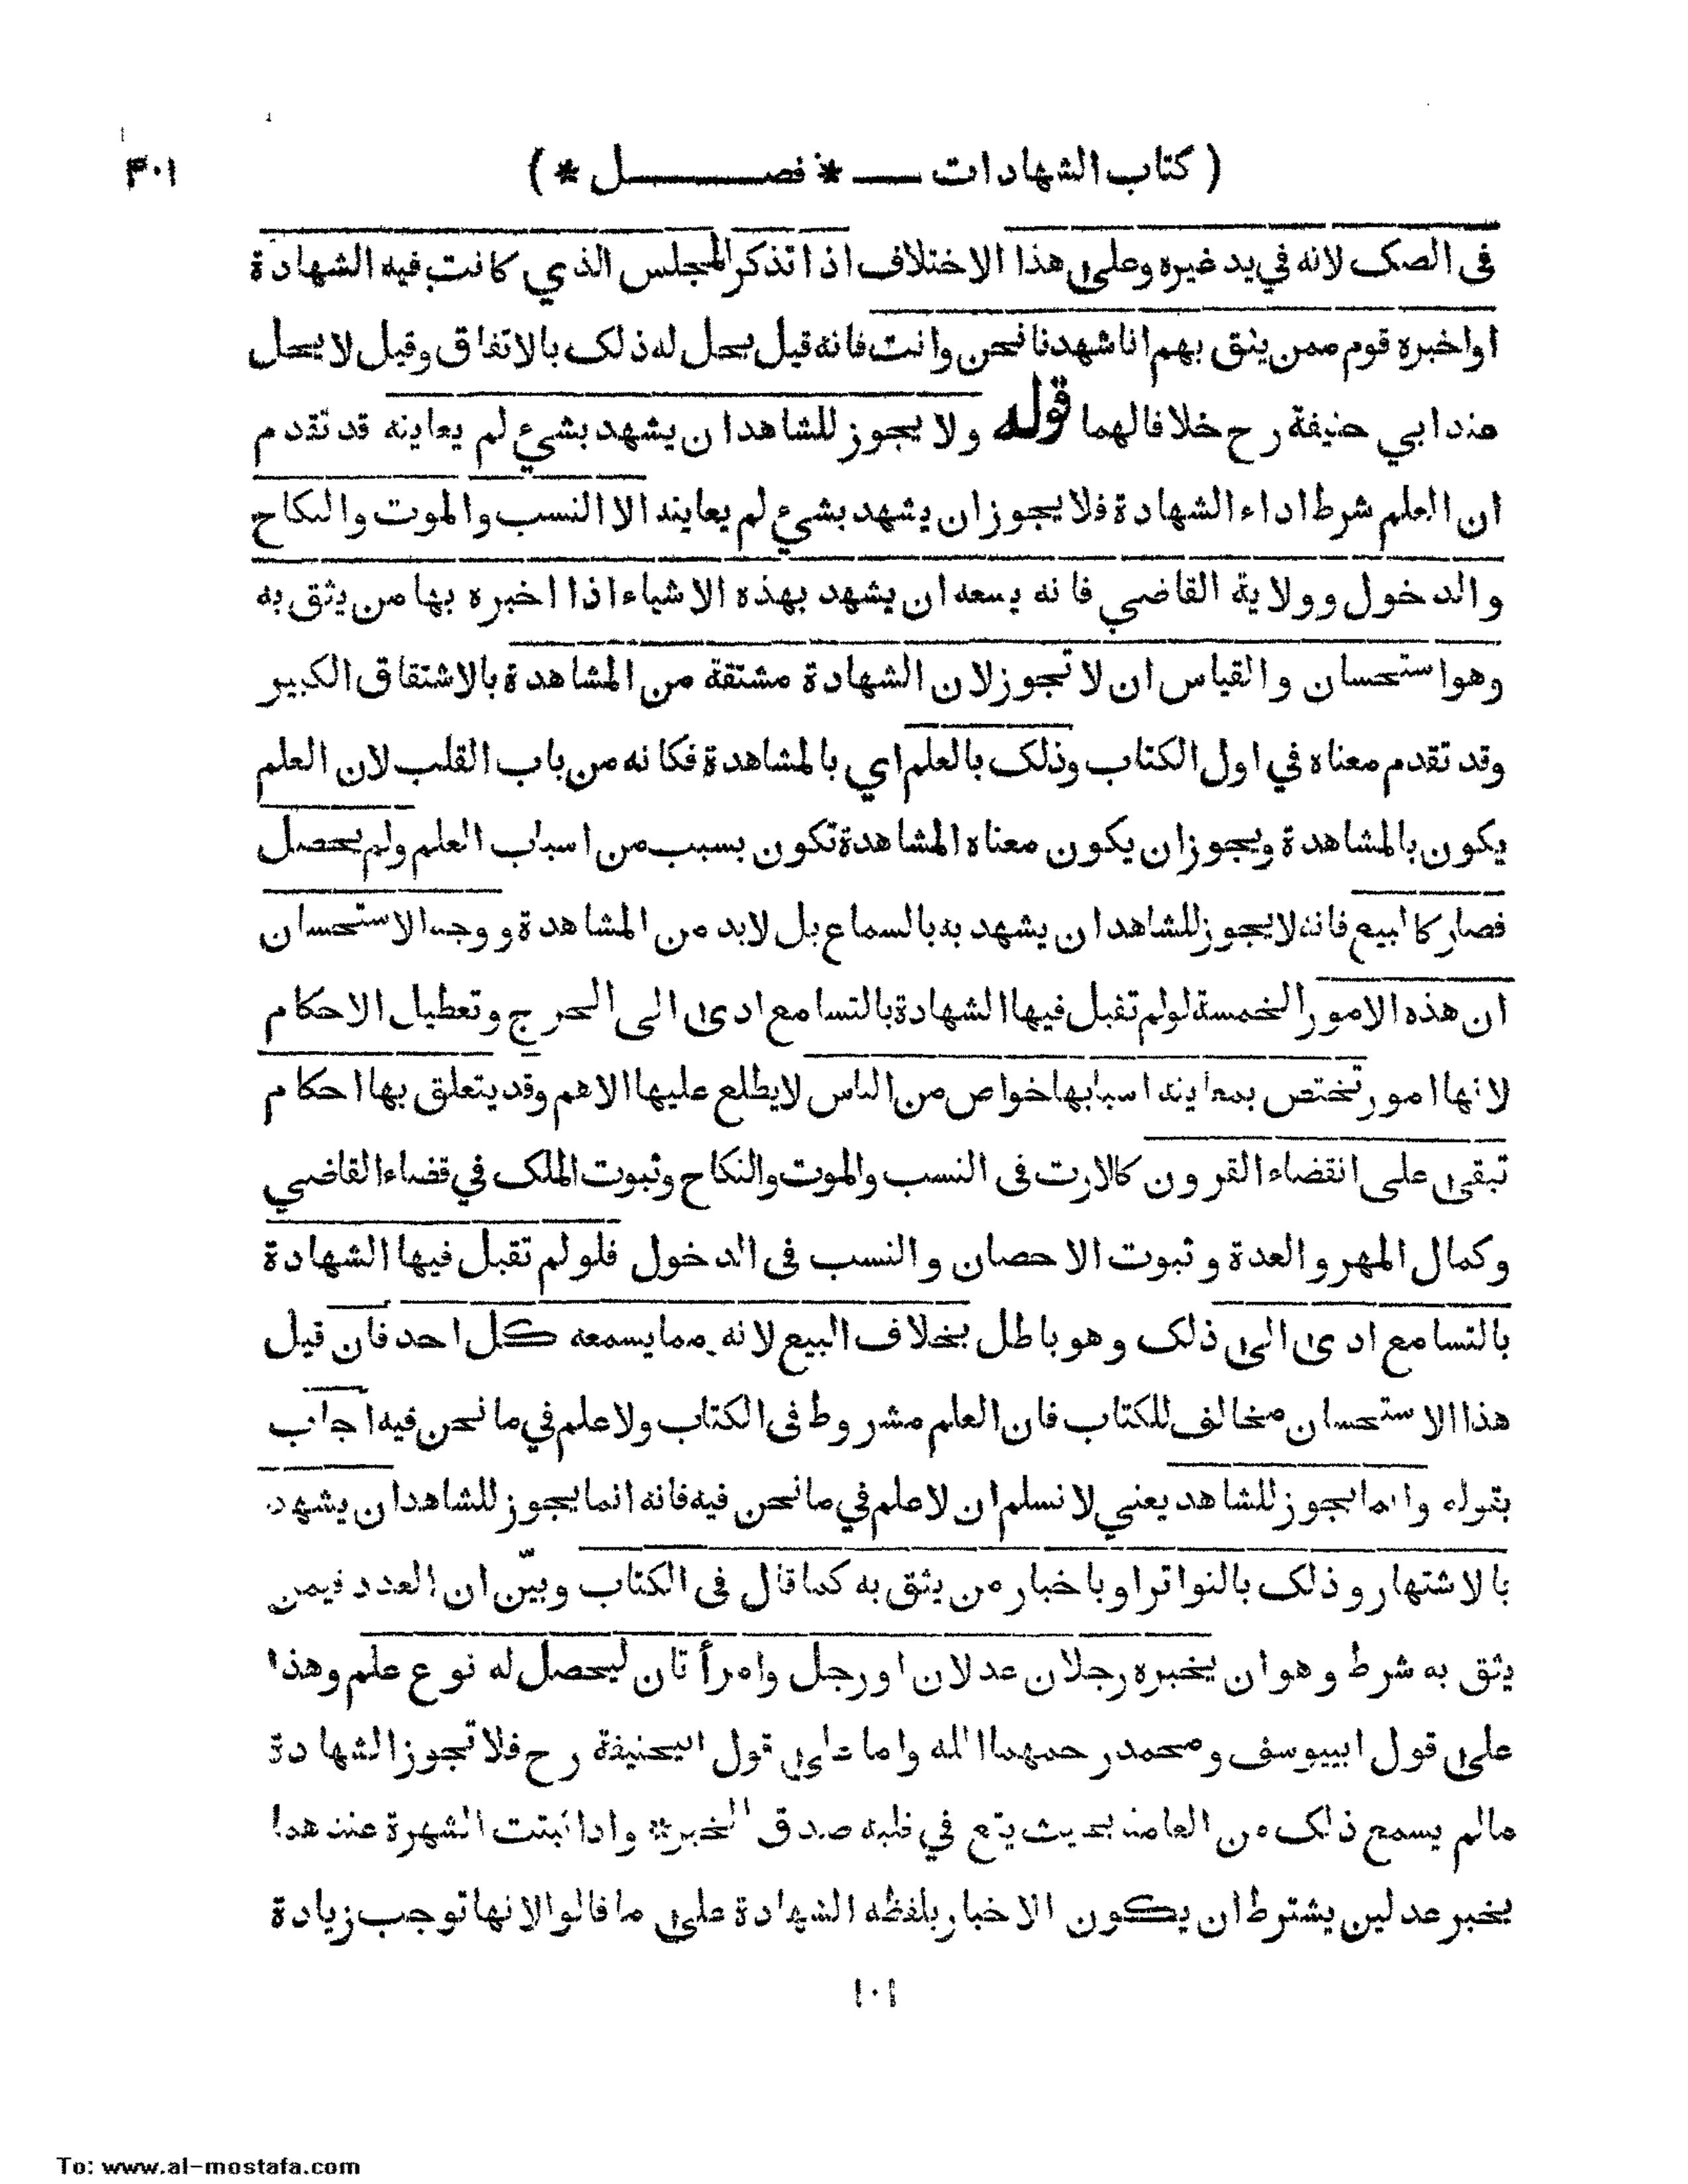 ( كتاب الشهادات — * فصــــل * )
٣٠١
فى الصك لانه في يد غيره وعلى هذا الاختلاف اذا تذكر المجلس الذي كانت فيه الشهادة
او اخبره قوم ممن يثق بهم انا شهدنا نحن وانت فانه قيل يحل له ذلك بالاتفاق وقيل لا يحل
عند ابي حنيفة رح خلافا لهما قوله ولا يجوز للشاهد ان يشهد بشيء لم يعاينه قد تقدم
ان العلم شرط اداء الشهادة فلا يجوز ان يشهد بشيء لم يعاينه الا النسب والموت والنكاح
والدخول وولاية القاضي فانه يسعه ان يشهد بهذه الاشياء اذا اخبره بها من يثق به
وهو استحسان والقياس ان لا تجوز لان الشهادة مشتقة من المشاهدة بالاشتقاق الكبير
وقد تقدم معناه في اول الكتاب وذلك بالعلم اي بالمشاهدة فكانه من باب القلب لان العلم
يكون بالمشاهدة ويجوز ان يكون معناه المشاهدة تكون بسبب من اسباب العلم ولم يحصل
فصار كالبيع فانه لا يجوز للشاهد ان يشهد به بالسماع بل لابد من المشاهدة ووجه الاستحسان
ان هذه الامور الخمسة لو لم تقبل فيها الشهادة بالتسامع ادى الى الحرج وتعطيل الاحكام
لانها امور تختص بمعاينة اسبابها خواص من الناس لا يطلع عليها الا هم وقد يتعلق بها احكام
تبقى على انقضاء القرون كالارث فى النسب والموت والنكاح وثبوت الملك في قضاء القاضي
وكمال المهر والعدة وثبوت الاحصان والنسب فى الدخول فلو لم تقبل فيها الشهادة
بالتسامع ادى الى ذلك وهو باطل بخلاف البيع لانه مما يسمعه كل احد فان قيل
هذا الاستحسان مخالف للكتاب فان العلم مشروط فى الكتاب ولا علم في ما نحن فيه اجاب
بقوله وانما يجوز للشاهد يعني لا نسلم ان لا علم في ما نحن فيه فانه انما يجوز للشاهد ان يشهد
بالاشتهار وذلك بالتواتر او باخبار من يثق به كما قال فى الكتاب وبيّن ان العدد فيمن
يثق به شرط وهو ان يخبره رجلان عدلان او رجل وامرأتان ليحصل له نوع علم وهذا
على قول ابييوسف ومحمد رحمهما الله واما على قول ابيحنيفة رح فلا تجوز الشهادة
مالم يسمع ذلك من العامة بحيث يقع في قلبه صدق الخبر * واذا ثبتت الشهرة عندهما
بخبر عدلين يشترط ان يكون الاخبار بلفظه الشهادة على ما قالوا لانها توجب زيادة
١٠١
To: www.al-mostafa.com